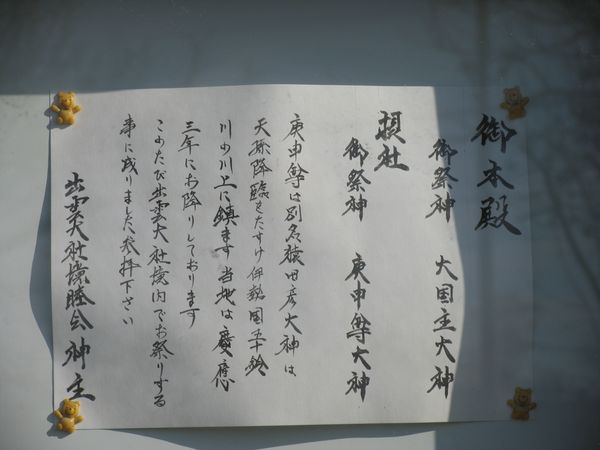 御本殿
御祭神　大国主大神
摂社
御祭神　庚申尊大神
庚申尊は別名猿田彦大神は
天孫降臨をたすけ伊勢国五十鈴
川の川上に鎮ます当地は慶應
三年にお降りしております
このたび出雲大社境内でお祭りする
事に成りました参拝下さい
出雲大社壌睦会神主